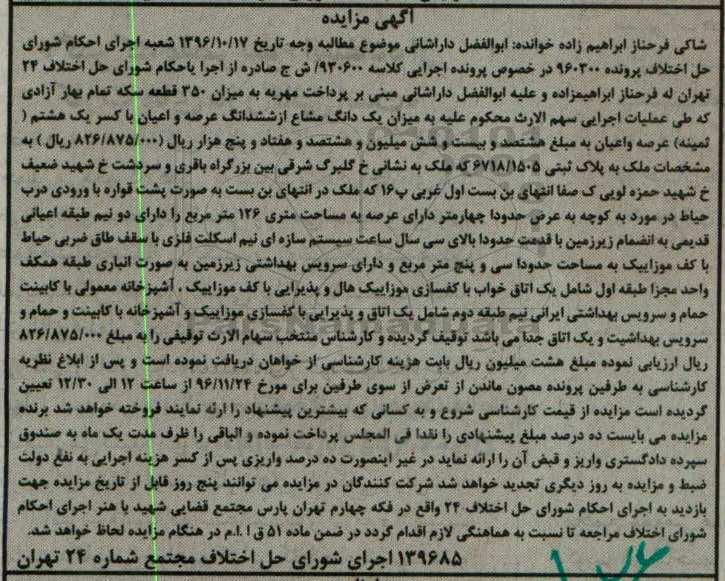 آگهی مزایده
شاکی فرحناز ابراهیم زاده خوانده: ابوالفضل داراشانی موضوع مطالبه وجه تاریخ ۱۳۹۶/۱۰/۱۷ شعبه اجرای احکام شورای
حل اختلاف پرونده ۹۶۰۳۰۰ در خصوص پرونده اجرایی کلاسه ۹۳۰۶۰۰/ ش ج صادره از اجرا یاحکام شورای حل اختلاف ۲۴
تهران له فرحناز ابراهیمزاده و علیه ابوالفضل داراشانی مبنی بر پرداخت مهریه به میزان ۳۵۰ قطعه سکه تمام بهار آزادی
که طی عملیات اجرایی سهم الارث محکوم علیه به میزان یک دانگ مشاع ازششدانگ عرصه و اعیان با کسر یک هشتم (
ثمینه) عرصه واعیان به مبلغ هشتصد و بیست و شش میلیون و هشتصد و هفتاد و پنج هزار ریال (۸۲۶/۸۷۵/۰۰۰ ریال ) به
مشخصات ملک به پلاک ثبتی ۶۷۱۸/۱۵۰۵ که ملک به نشانی خ گلبرگ شرقی بین بزرگراه باقری و سردشت خ شهید ضعیف
خ شهید حمزه لویی ک صفا انتهای بن بست اول غربی پ۱۶ که ملک در انتهای بن بست به صورت پشت قواره با ورودی درب
حیاط در مورد به کوچه به عرض حدودا چهارمتر دارای عرصه به مساحت متری ۱۲۶ متر مربع را دارای دو نیم طبقه اعیانی
قدیمی به انضمام زیرزمین با قدمت حدودا بالای سی سال ساعت سیستم سازه ای نیم اسکلت فلزی با سقف طاق ضربی حیاط
با کف موزاییک به مساحت حدودا سی و پنج متر مربع و دارای سرویس بهداشتی زیرزمین به صورت انباری طبقه همکف
واحد مجزا طبقه اول شامل یک اتاق خواب با کفسازی موزاییک هال و پذیرایی با کف موزاییک ، آشپزخانه معمولی با کابینت
حمام و سرویس بهداشتی ایرانی نیم طبقه دوم شامل یک اتاق و پذیرایی با کفسازی موزاییک و آشپزخانه با کابینت و حمام و
سرویس بهداشیت و یک اتاق جدا می باشد توقیف گردیده و کارشناس منتخب سهام الارث توقیفی را به مبلغ ۸۲۶/۸۷۵/۰۰۰
ریال ارزیابی نموده مبلغ هشت میلیون ریال بابت هزینه کارشناسی از خواهان دریافت نموده است و پس از ابلاغ نظریه
کارشناسی به طرفین پرونده مصون ماندن از تعرض از سوی طرفین برای مورخ ۹۶/۱۱/۲۴ از ساعت ۱۲ الی ۱۲/۳۰ تعیین
گردیده است مزایده از قیمت کارشناسی شروع و به کسانی که بیشترین پیشنهاد را ارئه نمایند فروخته خواهد شد برنده
مزایده می بایست ده درصد مبلغ پیشنهادی را نقدا فی المجلس پرداخت نموده و الباقی را ظرف مدت یک ماه به صندوق
سپرده دادگستری واریز و قبض آن را ارائه نماید در غیر اینصورت ده درصد واریزی پس از کسر هزینه اجرایی به نفع دولت
ضبط و مزایده به روز دیگری تجدید خواهد شد شرکت کنندگان در مزایده می توانند پنج روز قابل از تاریخ مزایده جهت
بازدید به اجرای احکام شورای حل اختلاف ۲۴ واقع در فکه چهارم تهران پارس مجتمع قضایی شهید با هنر اجرای احکام
شورای اختلاف مراجعه تا نسبت به هماهنگی لازم اقدام گردد در ضمن ماده ۵۱ ق ا .ا.م در هنگام مزایده لحاظ خواهد شد.
۱۳۹۶۸۵ اجرای شورای حل اختلاف مجتمع شماره ۲۴ تهران